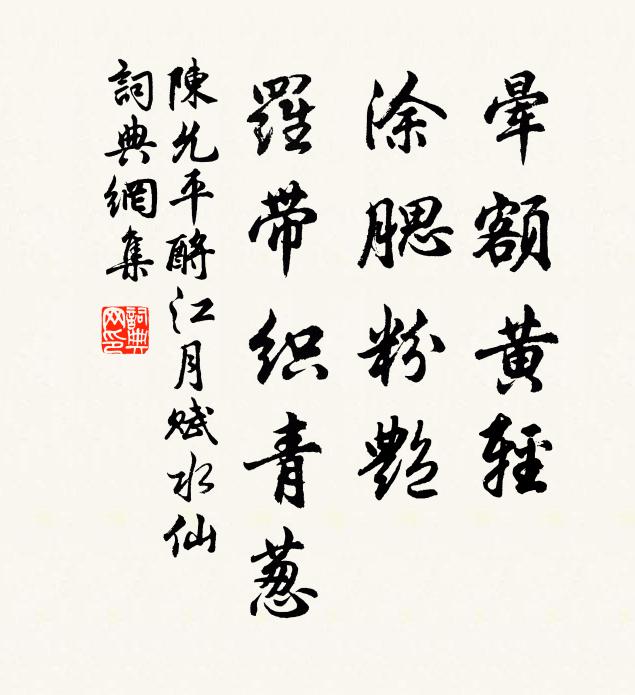 暈額黃輕
涂腮粉艷
羅帶织青葱
陳允平酹江月賦水仙
詞典網集
詞典网印